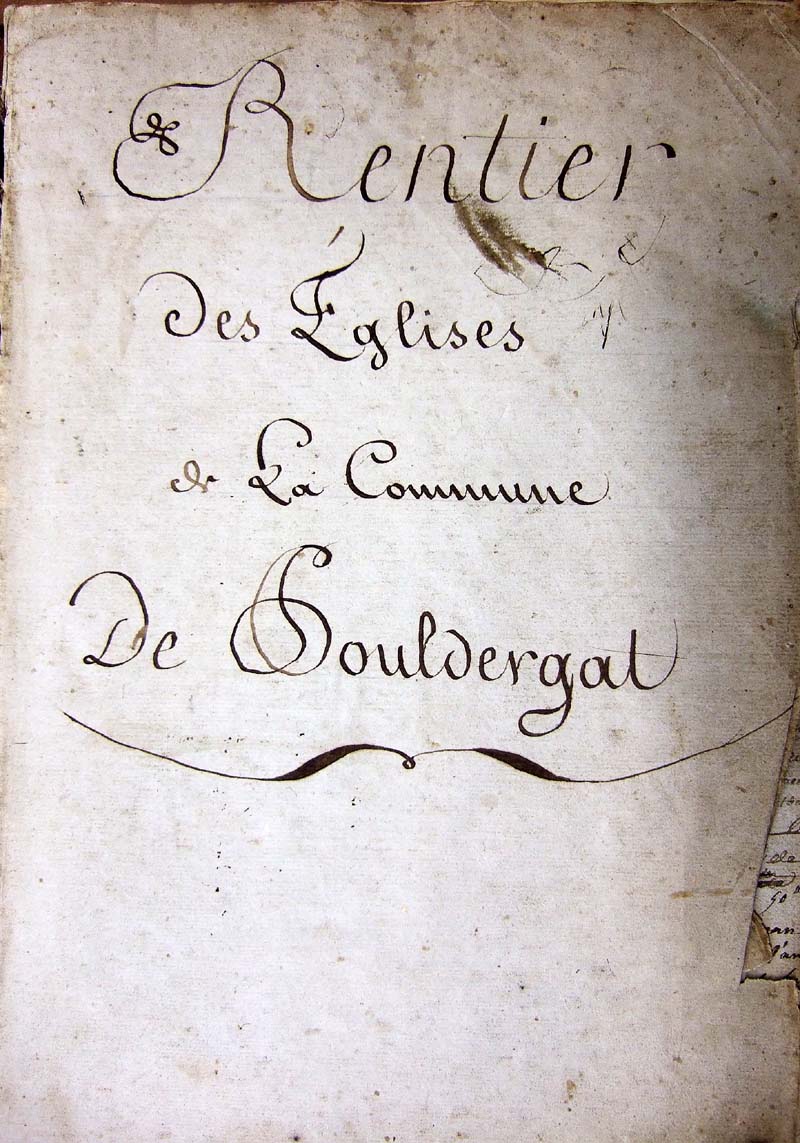 Rentier
des Églises
de La Commune
De Pouldergat
de
50